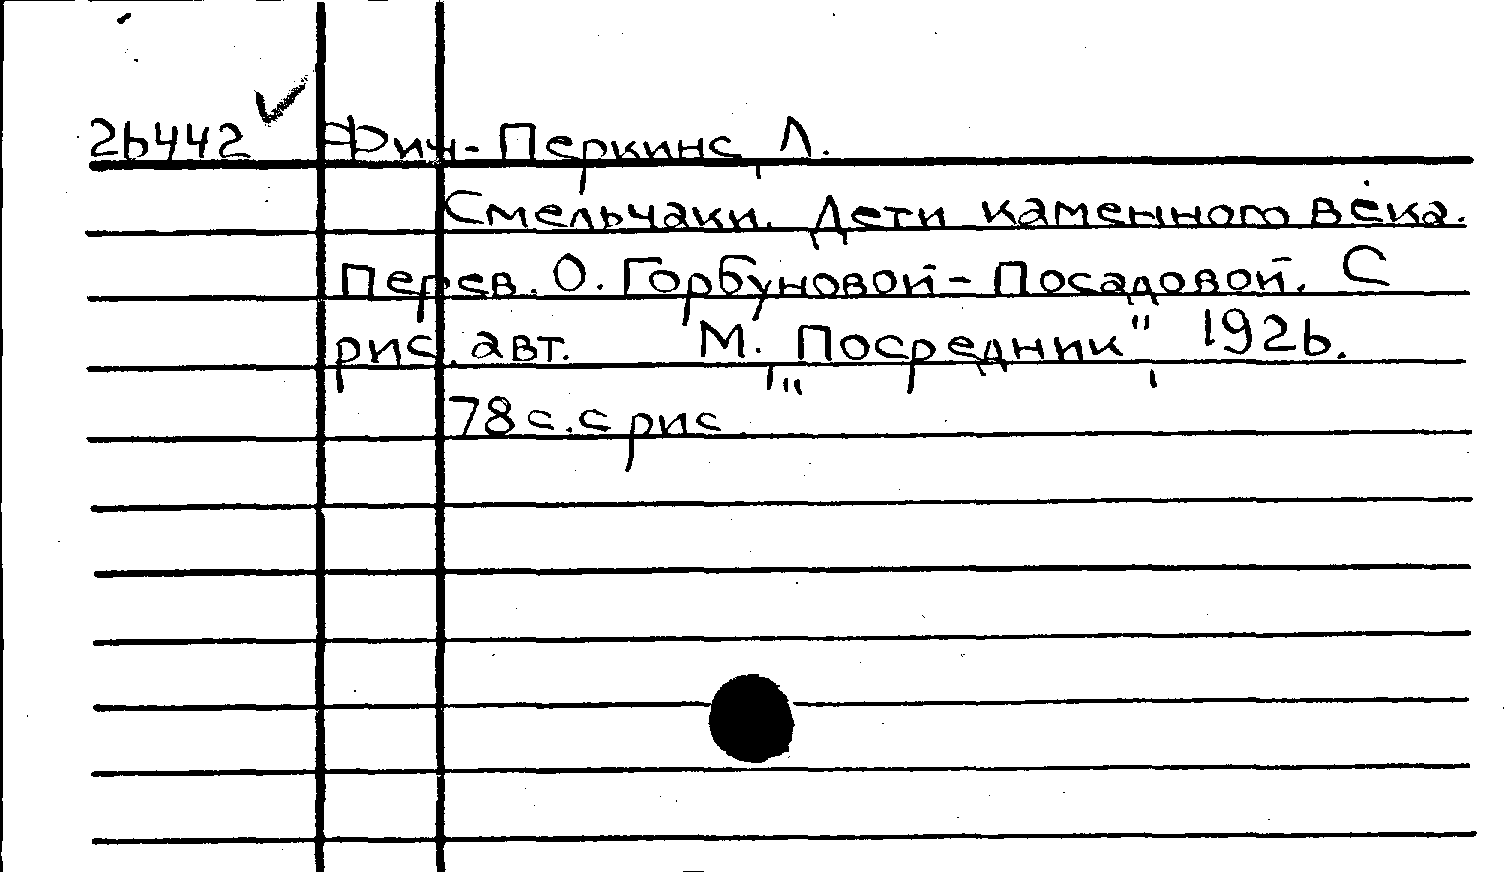 26442 Фич-Перкинс, Л.
Смельчаки. Дети каменного века.
Перев. О. Горбуновой-Посадовой. С
рис. авт. М. „Посредник", 1926.
78 с. с рис